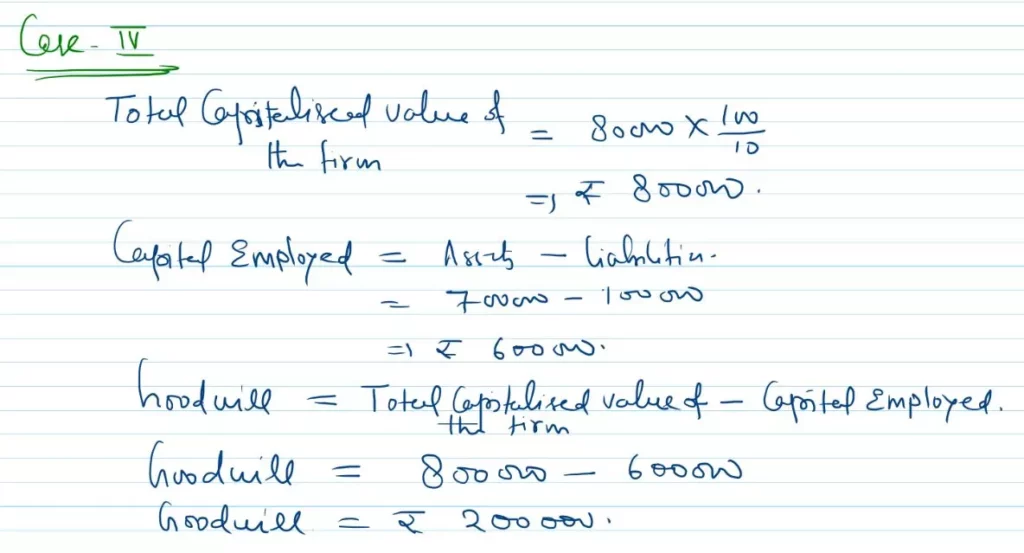 Case - IV
Total Capitalised value of the firm = 80000 × 100/10
=) ₹ 800000.
Capital Employed = Assets - Liabilities.
= 700000 - 100000
=) ₹ 600000.
Goodwill = Total Capitalised value of the firm - Capital Employed.
Goodwill = 800000 - 600000
Goodwill = ₹ 200000.